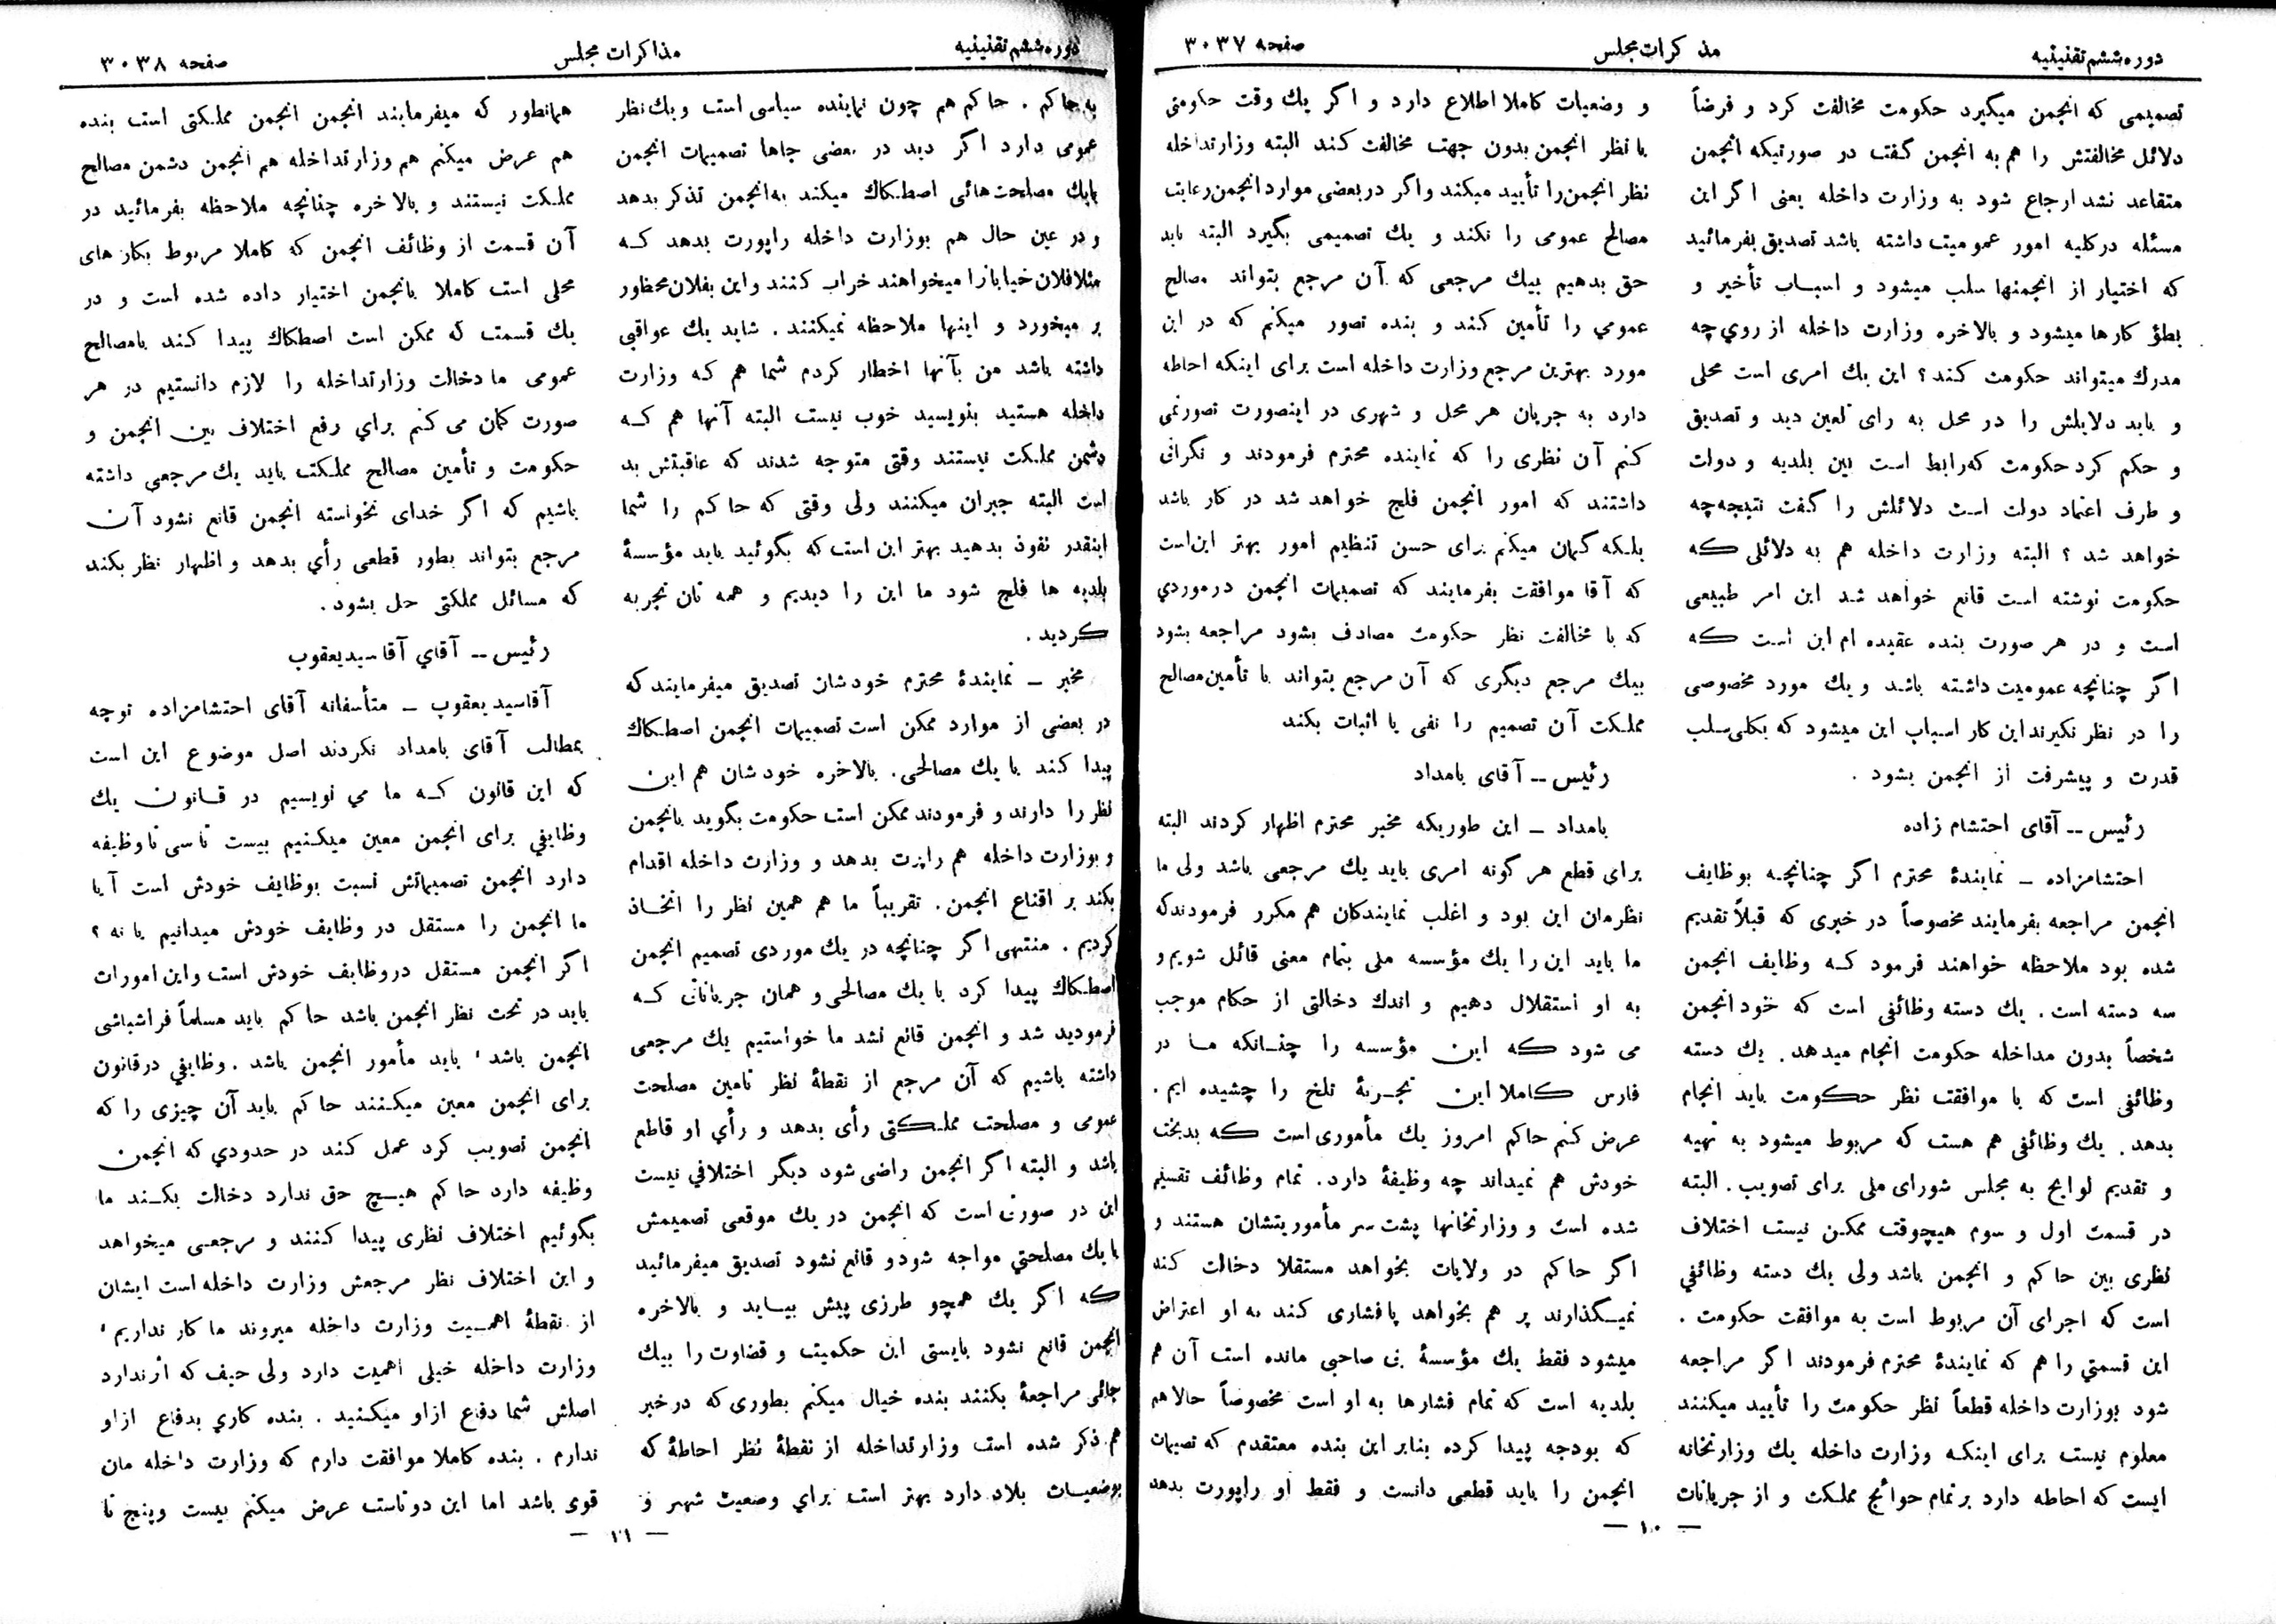 دوره ششم تقنینیه
مذاکرات مجلس
صفحه ۳۰۳۷
تصمیمی که انجمن میگیرد حکومت مخالفت کرد و فرضاً
دلائل مخالفتش را هم به انجمن گفت در صورتیکه انجمن
متقاعد نشد ارجاع شود به وزارت داخله یعنی اگر این
مسئله درکلیه امور عمومیت داشته باشد تصدیق بفرمائید
که اختیار از انجمنها سلب میشود و اسباب تأخیر و
بطؤ کارها میشود و بالاخره وزارت داخله از روی چه
مدرک میتواند حکومت کند؟ این یک امری است محلی
و باید دلایلش را در محل به رای لعین دید و تصدیق
و حکم کرد حکومت که رابط است بین بلدیه و دولت
و طرف اعتماد دولت است دلائلش را گفت نتیجه چه
خواهد شد ؟ البته وزارت داخله هم به دلائلی که
حکومت نوشته است قانع خواهد شد این امر طبیعی
است و در هر صورت بنده عقیده ام این است که
اگر چنانچه عمومیت داشته باشد و یک مورد مخصوصی
را در نظر نگیرند این کار اسباب این میشود که بکلی سلب
قدرت و پیشرفت از انجمن بشود .
رئیس -- آقای احتشام زاده
احتشامزاده - نمایندهٔ محترم اگر چنانچه بوظایف
انجمن مراجعه بفرمایند مخصوصاً در خبری که قبلاً تقدیم
شده بود ملاحظه خواهند فرمود که وظایف انجمن
سه دسته است . یک دسته وظائفی است که خود انجمن
شخصاً بدون مداخله حکومت انجام میدهد. یک دسته
وظائفی است که با موافقت نظر حکومت باید انجام
بدهد. یک وظائفی هم هست که مربوط میشود به تهیه
و تقدیم لوایح به مجلس شورای ملی برای تصویب. البته
در قسمت اول و سوم هیچوقت ممکن نیست اختلاف
نظری بین حاکم و انجمن باشد ولی یک دسته وظائفی
است که اجرای آن مربوط است به موافقت حکومت .
این قسمتی را هم که نمایندهٔ محترم فرمودند اگر مراجعه
شود بوزارت داخله قطعاً نظر حکومت را تأیید میکنند
معلوم نیست برای اینکه وزارت داخله یک وزارتخانه
ایست که احاطه دارد بر تمام حوائج مملکت و از جریانات
و وضعیات کاملا اطلاع دارد و اگر یک وقت حکومتی
با نظر انجمن بدون جهت مخالفت کند البته وزارتداخله
نظر انجمن را تأیید میکند و اگر در بعضی موارد انجمن رعایت
مصالح عمومی را نکند و یک تصمیمی بگیرد البته باید
حق بدهیم بیک مرجعی که آن مرجع بتواند مصالح
عمومی را تأمین کند و بنده تصور میکنم که در این
مورد بهترین مرجع وزارت داخله است برای اینکه احاطه
دارد به جریان هر محل و شهری در اینصورت تصورنمی
کنم آن نظری را که نماینده محترم فرمودند و نگرانی
داشتند که امور انجمن فلج خواهد شد در کار باشد
بلکه گمان میکنم برای حسن تنظیم امور بهتر این است
که آقا موافقت بفرمایند که تصمیمات انجمن در موردی
که با مخالفت نظر حکومت مصادف بشود مراجعه بشود
بیک مرجع دیگری که آن مرجع بتواند با تأمین مصالح
مملکت آن تصمیم را نفی یا اثبات بکند
رئیس -- آقای بامداد
بامداد - این طوریکه مخبر محترم اظهار کردند البته
برای قطع هر گونه امری باید یک مرجعی باشد ولی ما
نظرمان این بود و اغلب نمایندکان هم مکرر فرمودند که
ما باید این را یک مؤسسه ملی بتمام معنی قائل شویم و
به او استقلال دهیم و اندک دخالتی از حکام موجب
می شود که این مؤسسه را چنانکه ما در
فارس کاملا این تجربهٔ تلخ را چشیده ایم .
عرض کنم حاکم امروز یک مأموری است که بدبخت
خودش هم نمیداند چه وظیفهٔ دارد. تمام وظائف تقسیم
شده است و وزارتخانها پشت سر مأموریتشان هستند و
اگر حاکم در ولایات بخواهد مستقلا دخالت کند
نمیگذارند پر هم بخواهد پافشاری کند به او اعتراض
میشود فقط یک مؤسسهٔ بی صاحبی مانده است آن هم
بلدیه است که تمام فشارها به او است مخصوصاً حالا هم
که بودجه پیدا کرده بنابر این بنده معتقدم که تصمیمات
انجمن را باید قطعی دانست و فقط او راپورت بدهد
— ۱۰ —
دوره ششم تقنینیه
مذاکرات مجلس
صفحه ۳۰۳۸
به حاکم . حاکم هم چون نماینده سیاسی است و یک نظر
عمومی دارد اگر دید در بعضی جاها تصمیمات انجمن
بایک مصلحت هائی اصطکاک میکند به انجمن تذکر بدهد
و در عین حال هم بوزارت داخله راپورت بدهد که
مثلا فلان خیابانرا میخواهند خراب کنند و این بفلان محظور
بر میخورد و اینها ملاحظه نمیکنند . شاید یک عواقبی
داشته باشد من بآنها اخطار کردم شما هم که وزارت
داخله هستید بنویسید خوب نیست البته آنها هم که
دشمن مملکت نیستند وقتی متوجه شدند که عاقبتش بد
است البته جبران میکنند ولی وقتی که حاکم را شما
اینقدر نفوذ بدهید بهتر این است که بگوئید باید مؤسسهٔ
بلدیه ها فلج شود ما این را دیدیم و همه تان تجربه
کردید .
مخبر - نمایندهٔ محترم خودشان تصدیق میفرمایند که
در بعضی از موارد ممکن است تصمیمات انجمن اصطکاک
پیدا کند با یک مصالحی. بالاخره خودشان هم این
نظر را دارند و فرمودند ممکن است حکومت بگوید بانجمن
و بوزارت داخله هم راپرت بدهد و وزارت داخله اقدام
بکند بر اقناع انجمن. تقریباً ما هم همین نظر را اتخاذ
کردیم . منتهی اگر چنانچه در یک موردی تصمیم انجمن
اصطکاک پیدا کرد با یک مصالحی و همان جریاناتی که
فرمودید شد و انجمن قانع نشد ما خواستیم یک مرجعی
داشته باشیم که آن مرجع از نقطهٔ نظر تامین مصلحت
عمومی و مصلحت مملکتی رأی بدهد و رأی او قاطع
باشد و البته اگر انجمن راضی شود دیگر اختلافی نیست
این در صورتی است که انجمن در یک موقعی تصمیمش
با یک مصلحتی مواجه شود و قانع نشود تصدیق میفرمائید
که اگر یک همچو طرزی پیش بیاید و بالاخره
انجمن قانع نشود بایستی این حکمیت و قضاوت را بیک
جائی مراجعهٔ بکنند بنده خیال میکنم بطوری که در خبر
هم ذکر شده است وزارتداخله از نقطهٔ نظر احاطهٔ که
بوضعیات بلاد دارد بهتر است برای وضعیت شهر و
همانطور که میفرمایند انجمن انجمن مملکتی است بنده
هم عرض میکنم هم وزارتداخله هم انجمن دشمن مصالح
مملکت نیستند و بالاخره چنانچه ملاحظه بفرمائید در
آن قسمت از وظائف انجمن که کاملا مربوط بکارهای
محلی است کاملا بانجمن اختیار داده شده است و در
یک قسمت که ممکن است اصطکاک پیدا کند بامصالح
عمومی ما دخالت وزارتداخله را لازم دانستیم در هر
صورت کمان می کنم برای رفع اختلاف بین انجمن و
حکومت و تأمین مصالح مملکت باید یک مرجعی داشته
باشیم که اگر خدای نخواسته انجمن قانع نشود آن
مرجع بتواند بطور قطعی رأی بدهد و اظهار نظر بکند
که مسائل مملکتی حل بشود.
رئیس -- آقای آقاسیدیعقوب
آقاسیدیعقوب - متأسفانه آقای احتشامزاده توجه
بمطالب آقای بامداد نکردند اصل موضوع این است
که این قانون که ما می نویسیم در قانون یک
وظایفی برای انجمن معین میکنیم بیست تا سی تا وظیفه
دارد انجمن تصمیماتش نسبت بوظایف خودش است آیا
ما انجمن را مستقل در وظایف خودش میدانیم یا نه ؟
اگر انجمن مستقل در وظایف خودش است و این امورات
باید در تحت نظر انجمن باشد حاکم باید مسلماً فراشباشی
انجمن باشد، باید مأمور انجمن باشد. وظایفی در قانون
برای انجمن معین میکنند حاکم باید آن چیزی را که
انجمن تصویب کرد عمل کند در حدودی که انجمن
وظیفه دارد حاکم هیچ حق ندارد دخالت بکند ما
بگوئیم اختلاف نظری پیدا کنند و مرجعی میخواهد
و این اختلاف نظر مرجعش وزارت داخله است ایشان
از نقطهٔ اهمیت وزارت داخله میروند ما کار نداریم،
وزارت داخله خیلی اهمیت دارد ولی حیف که اثر ندارد
اصلش شما دفاع از او میکنید . بنده کاری بدفاع از او
ندارم . بنده کاملا موافقت دارم که وزارت داخله مان
قوی باشد اما این دو تاست عرض میکنم بیست و پنج تا
— ۱۱ —